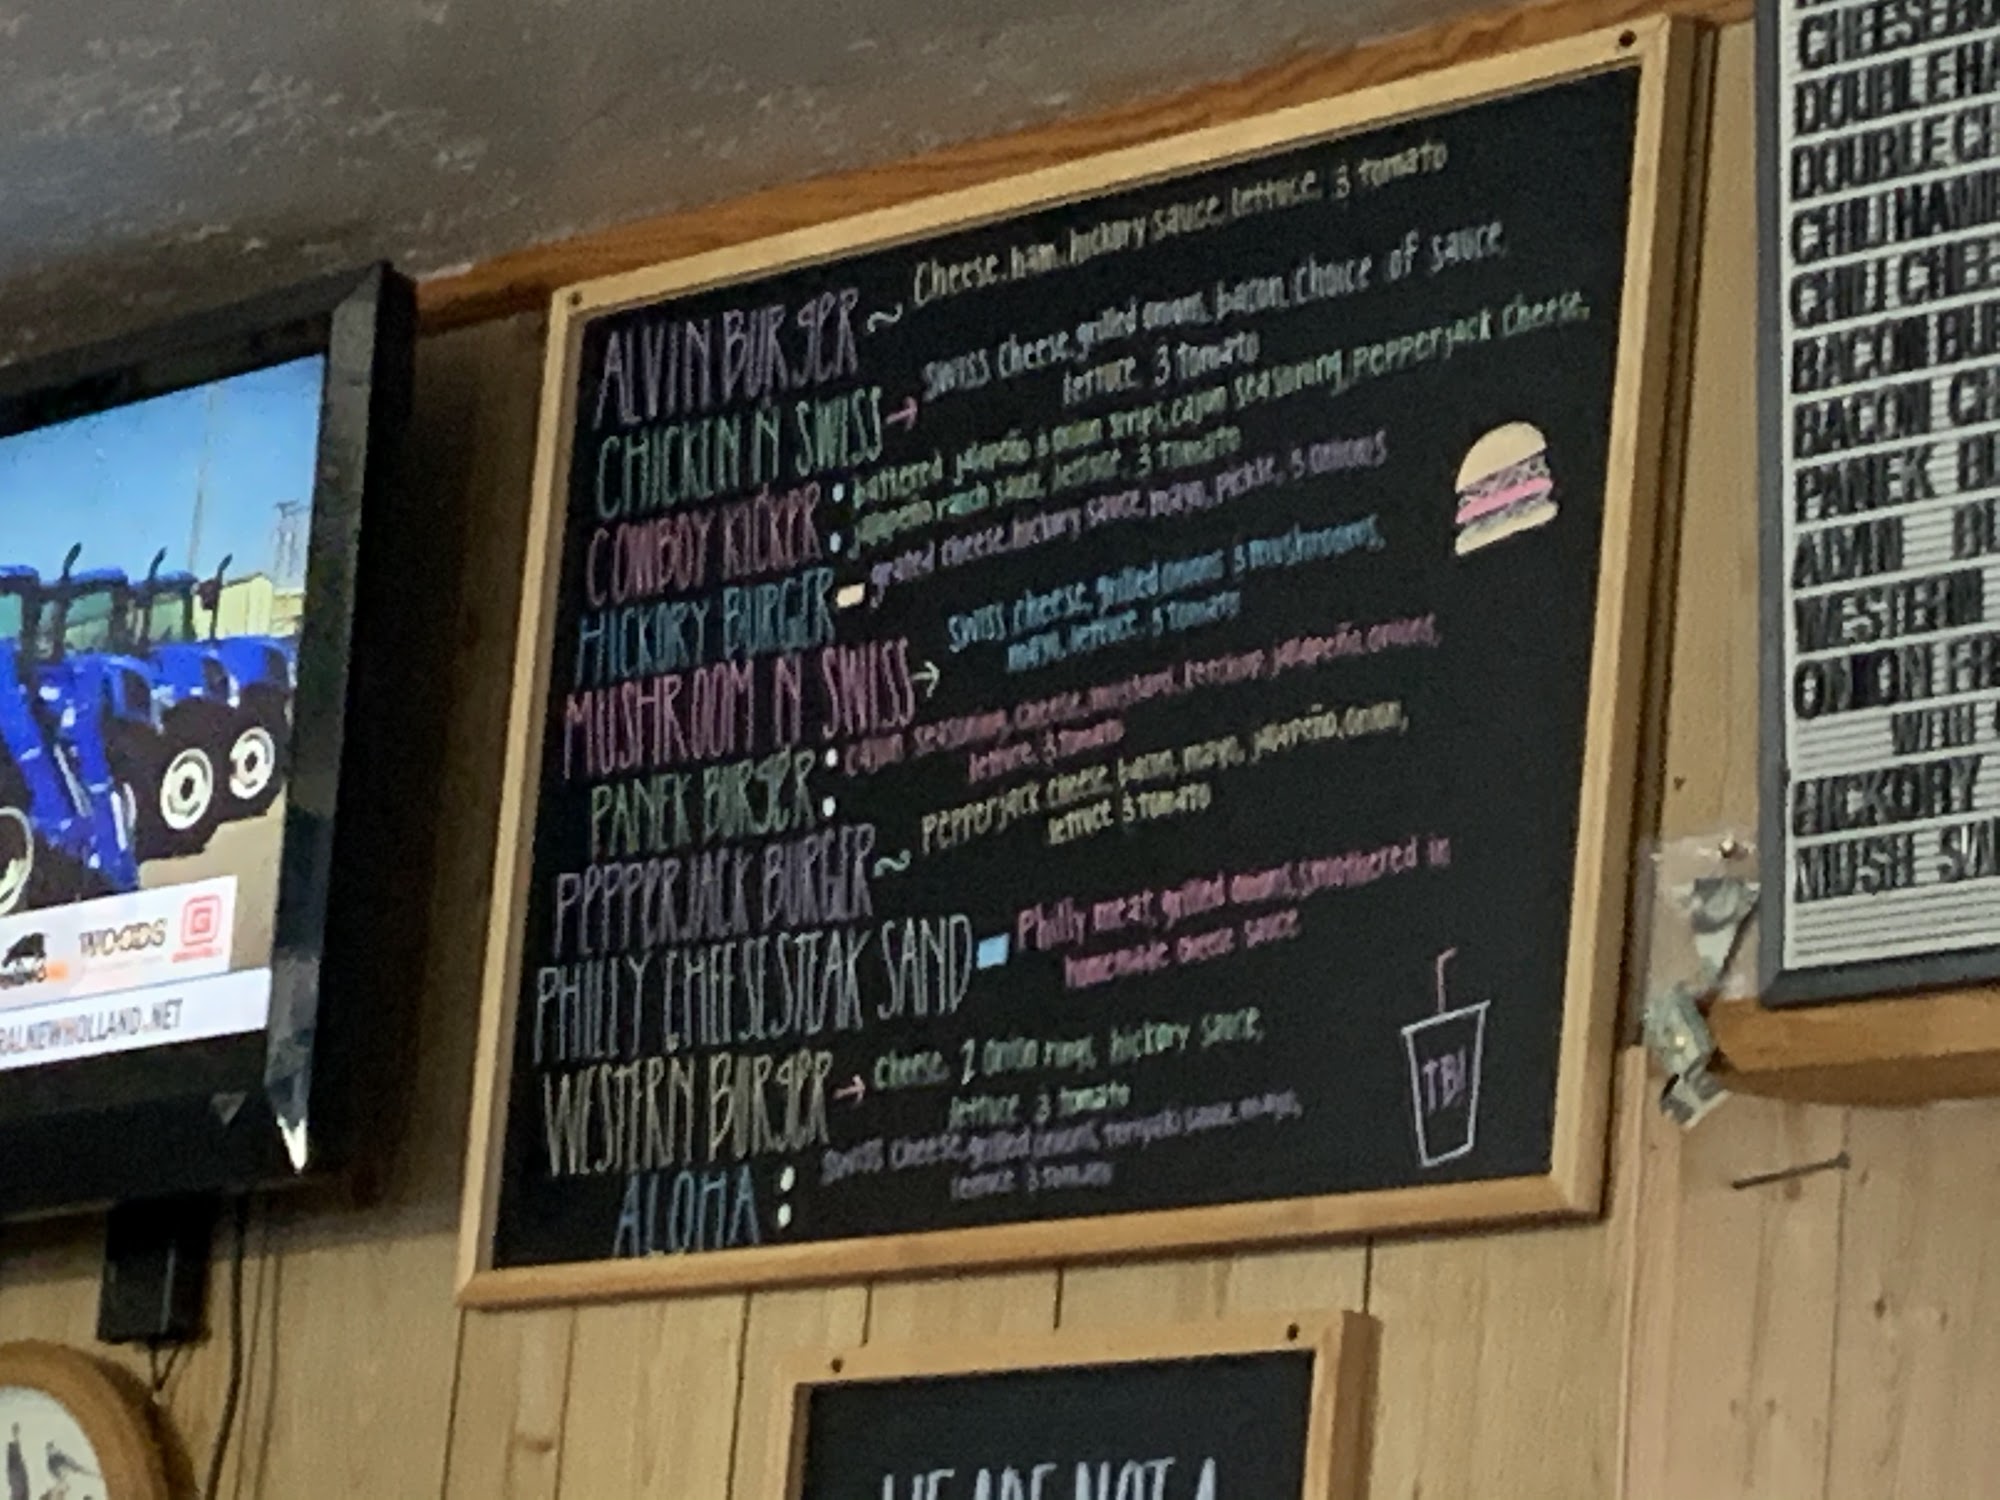 ALVIN BURGER ~ Cheese, ham, hickory sauce, lettuce, & tomato
CHICKEN N SWISS → swiss cheese, grilled onions, bacon, choice of sauce,
lettuce & tomato
COWBOY KICKER : battered jalapeño & onion strips, cajun seasoning, pepperjack cheese,
jalapeño ranch sauce, lettuce & tomato
HICKORY BURGER - grated cheese, hickory sauce, mayo, pickle, & onions
MUSHROOM N SWISS → swiss cheese, grilled onions & mushrooms,
mayo, lettuce & tomato
PANEK BURGER : cajun seasoning, cheese, mustard, ketchup, jalapeño, onions,
lettuce, & tomato
PEPPERJACK BURGER ~ pepperjack cheese, bacon, mayo, jalapeño, onion,
lettuce & tomato
PHILLY CHEESESTEAK SAND - Philly meat, grilled onions, smothered in
homemade cheese sauce
WESTERN BURGER → cheese, 2 onion rings, hickory sauce,
lettuce & tomato
ALOHA : swiss cheese, grilled onions, teriyaki sauce, mayo,
lettuce & tomato
TBI
WOODS
RALNEWHOLLAND.NET
CHEESEBU
DOUBLE HA
DOUBLE CH
CHILI HAMB
CHILI CHEE
BACON BU
BACON CH
PANEK BU
ALVIN BU
WESTERN
ONION FR
WITH
HICKORY
MUSH SW
WE ARE NOT A